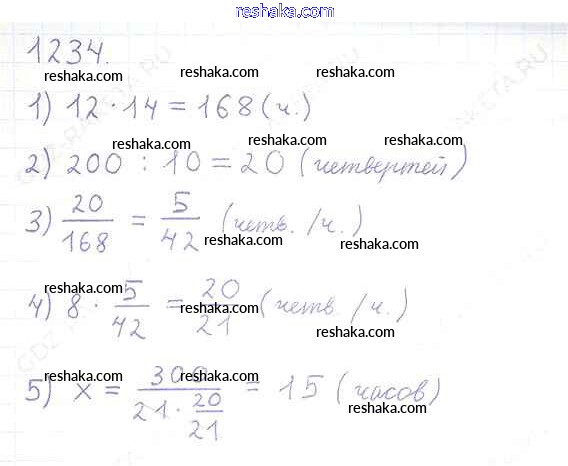 reshaka.com
1234.
reshaka.com reshaka.com reshaka.com
1) 12 · 14 = 168 (ч.)
reshaka.com reshaka.com reshaka.com
2) 200 : 10 = 20 (четвертей)
3) 20/168 = 5/42 (четв. /ч.)
reshaka.com reshaka.com
4) 8 · 5/42 = 20/21 (четв. /ч.)
reshaka.com reshaka.com
reshaka.com
reshaka.com reshaka.com
5) x = 300/(21 · 20/21) = 15 (часов)
reshaka.com